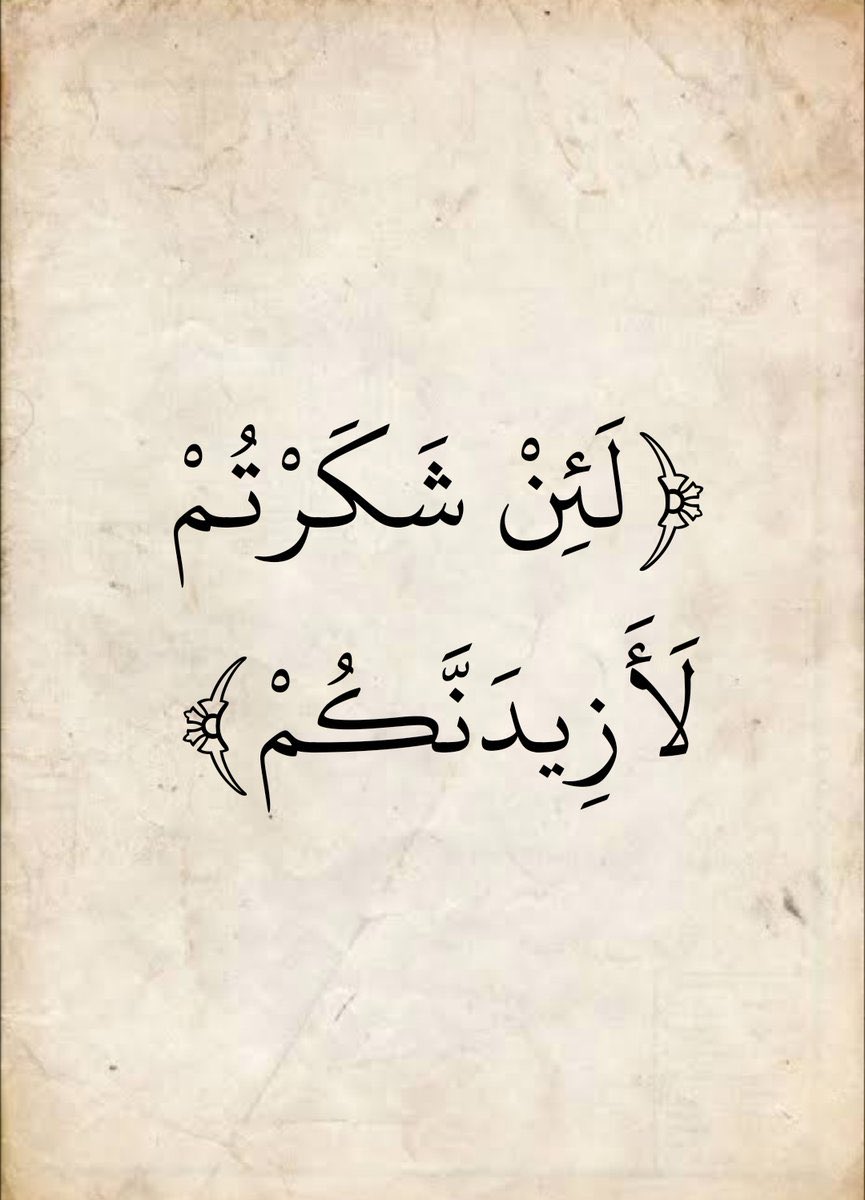 ﴿لَئِنْ شَكَرْتُمْ
لَأَزِيدَنَّكُمْ﴾